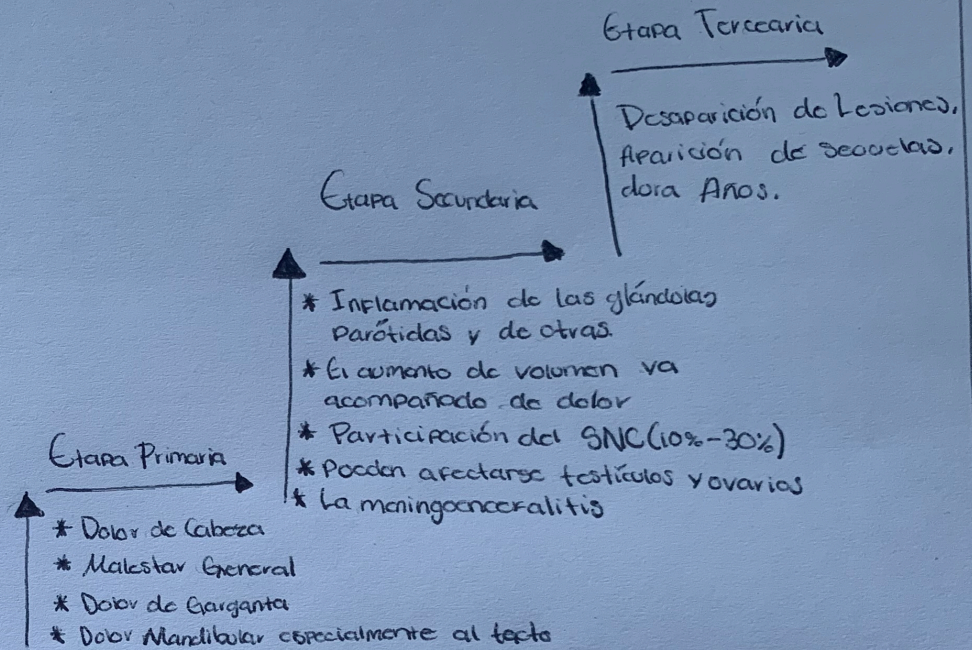 Etapa Tercearia
Desaparición de Lesiones,
Aparición de secuelas,
dura Años.
Etapa Secundaria
* Inflamación de las glándulas
parótidas y de otras.
* El aumento de volumen va
acompañado de dolor
* Participación del SNC (10%-30%)
* Pueden afectarse testículos y ovarios
* La meningoencefalitis
Etapa Primaria
* Dolor de Cabeza
* Malestar General
* Dolor de Garganta
* Dolor Mandibular especialmente al tacto